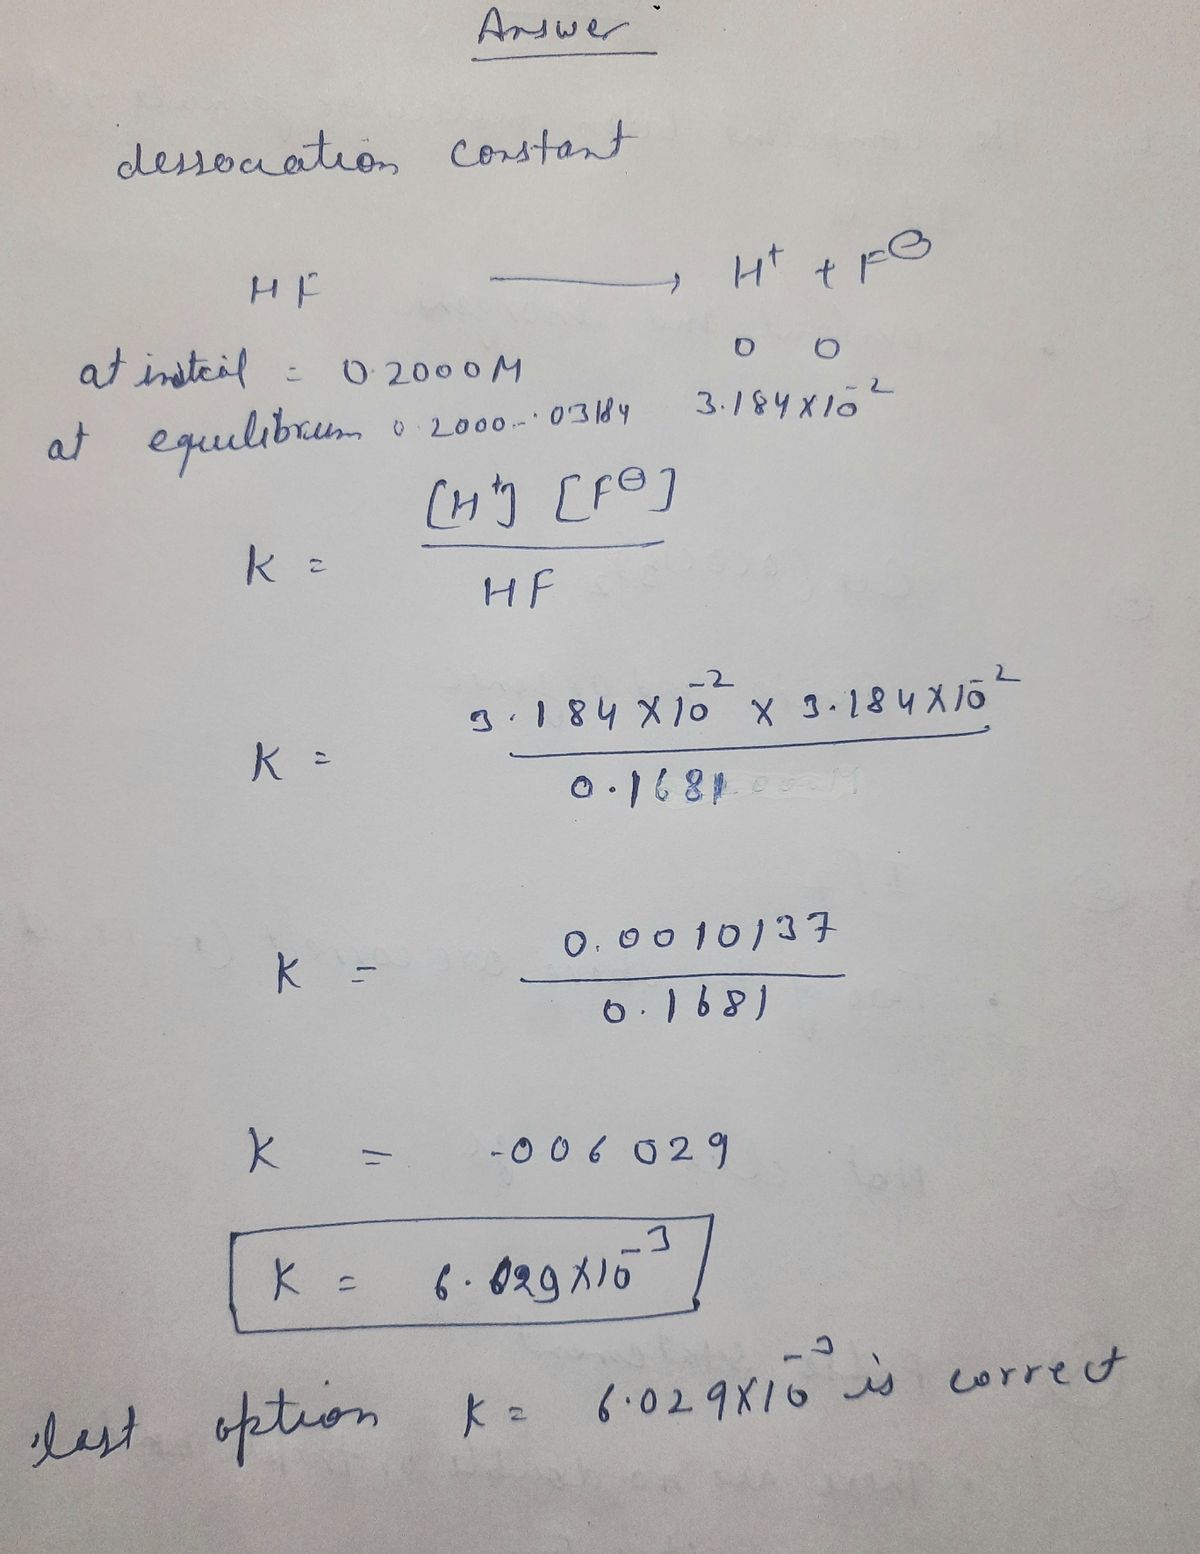 Answer
dessociation constant
HF ⟶ H⁺ + F⊖
0 0
at instial = 0.2000M
at equilibrium 0.2000-.03184 3.184×10⁻²
K = [H⁺] [F⊖] / HF
K = 3.184×10⁻² × 3.184×10⁻² / 0.1681
K = 0.0010137 / 0.1681
K = .006029
K = 6.029×10⁻³
last option K = 6.029×10⁻³ is correct